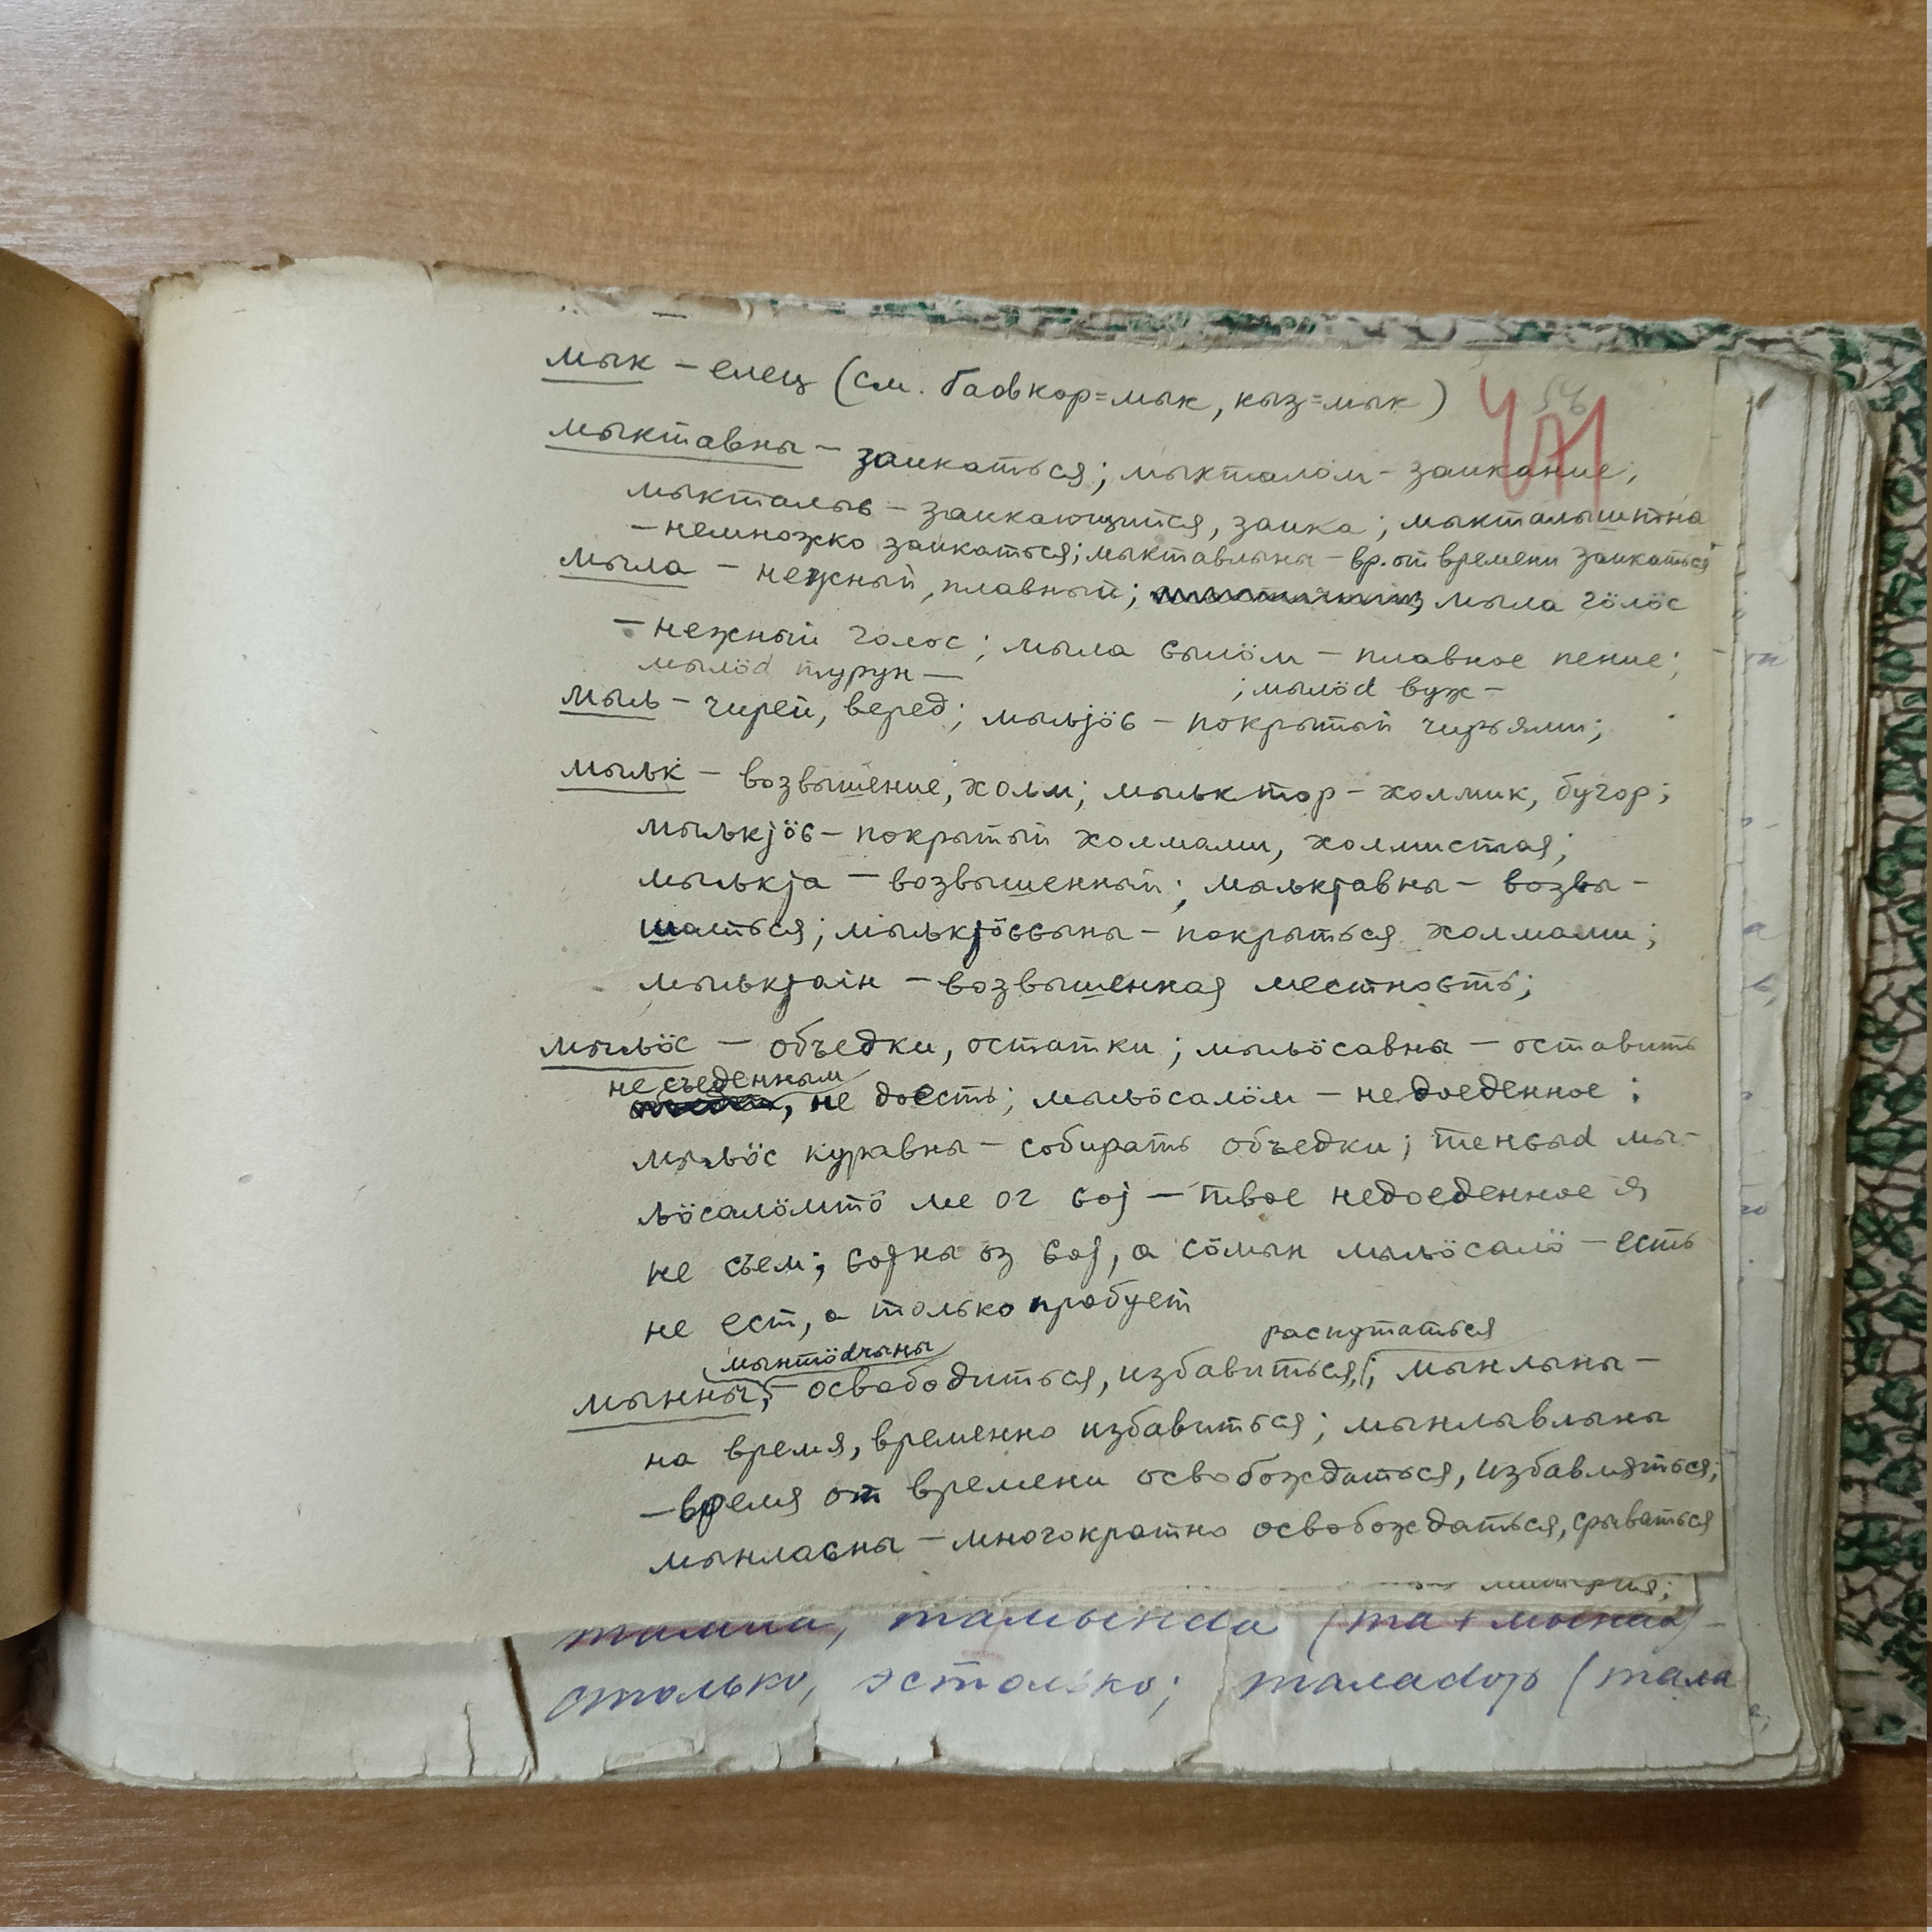 мык – елец (см. баԃкор=мык, кыз=мык)
471
мыктавны – заикаться; мыкталöм – заикание;
мыкталыԍ – заикающийся, заика; мыкталыштна
– немножко заикаться; мыктавлыны – вр. от времени заикаться
мыла – нежный, плавный; мыла гöлöс
– нежный голос; мыла ԍылöм – плавное пение;
мылöԁ турун —
; мылöԁ вуж –
мыԉ – чирей, веред; мыԉјöԍ – покрытый чирьями;
мыԉк – возвышение, холм; мыԉктор – холмик, бугор;
мыԉкјöԍ – покрытый холмами, холмистая;
мыԉкја – возвышенный; мыԉкјавны – возвы-
шаться; мыԉкјöԍԍыны – покрыться холмами;
мыԉкјаін – возвышенная местность;
мыԉöс – объедки, остатки; мыԉöсавны – оставить
не съеденным
не доесть; мыԉöсалöм – недоеденное;
мыԉöс куравны – собирать объедки; тенԍыԁ мы-
ԉöсалöмтö ме ог ԍој – твое недоеденное я
не съем; ԍојны оз ԍој, а сöмын мыԉöсалö – есть
не ест, а только пробует
мынтöԁчыны
распутаться
мынны, – освободиться, избавиться,; мынлыны –
на время, временно избавиться; мынлывлыны
– время от времени освобождаться, избавляться;
мынлаԍны – многократно освобождаться, срываться
столько, эстолько;